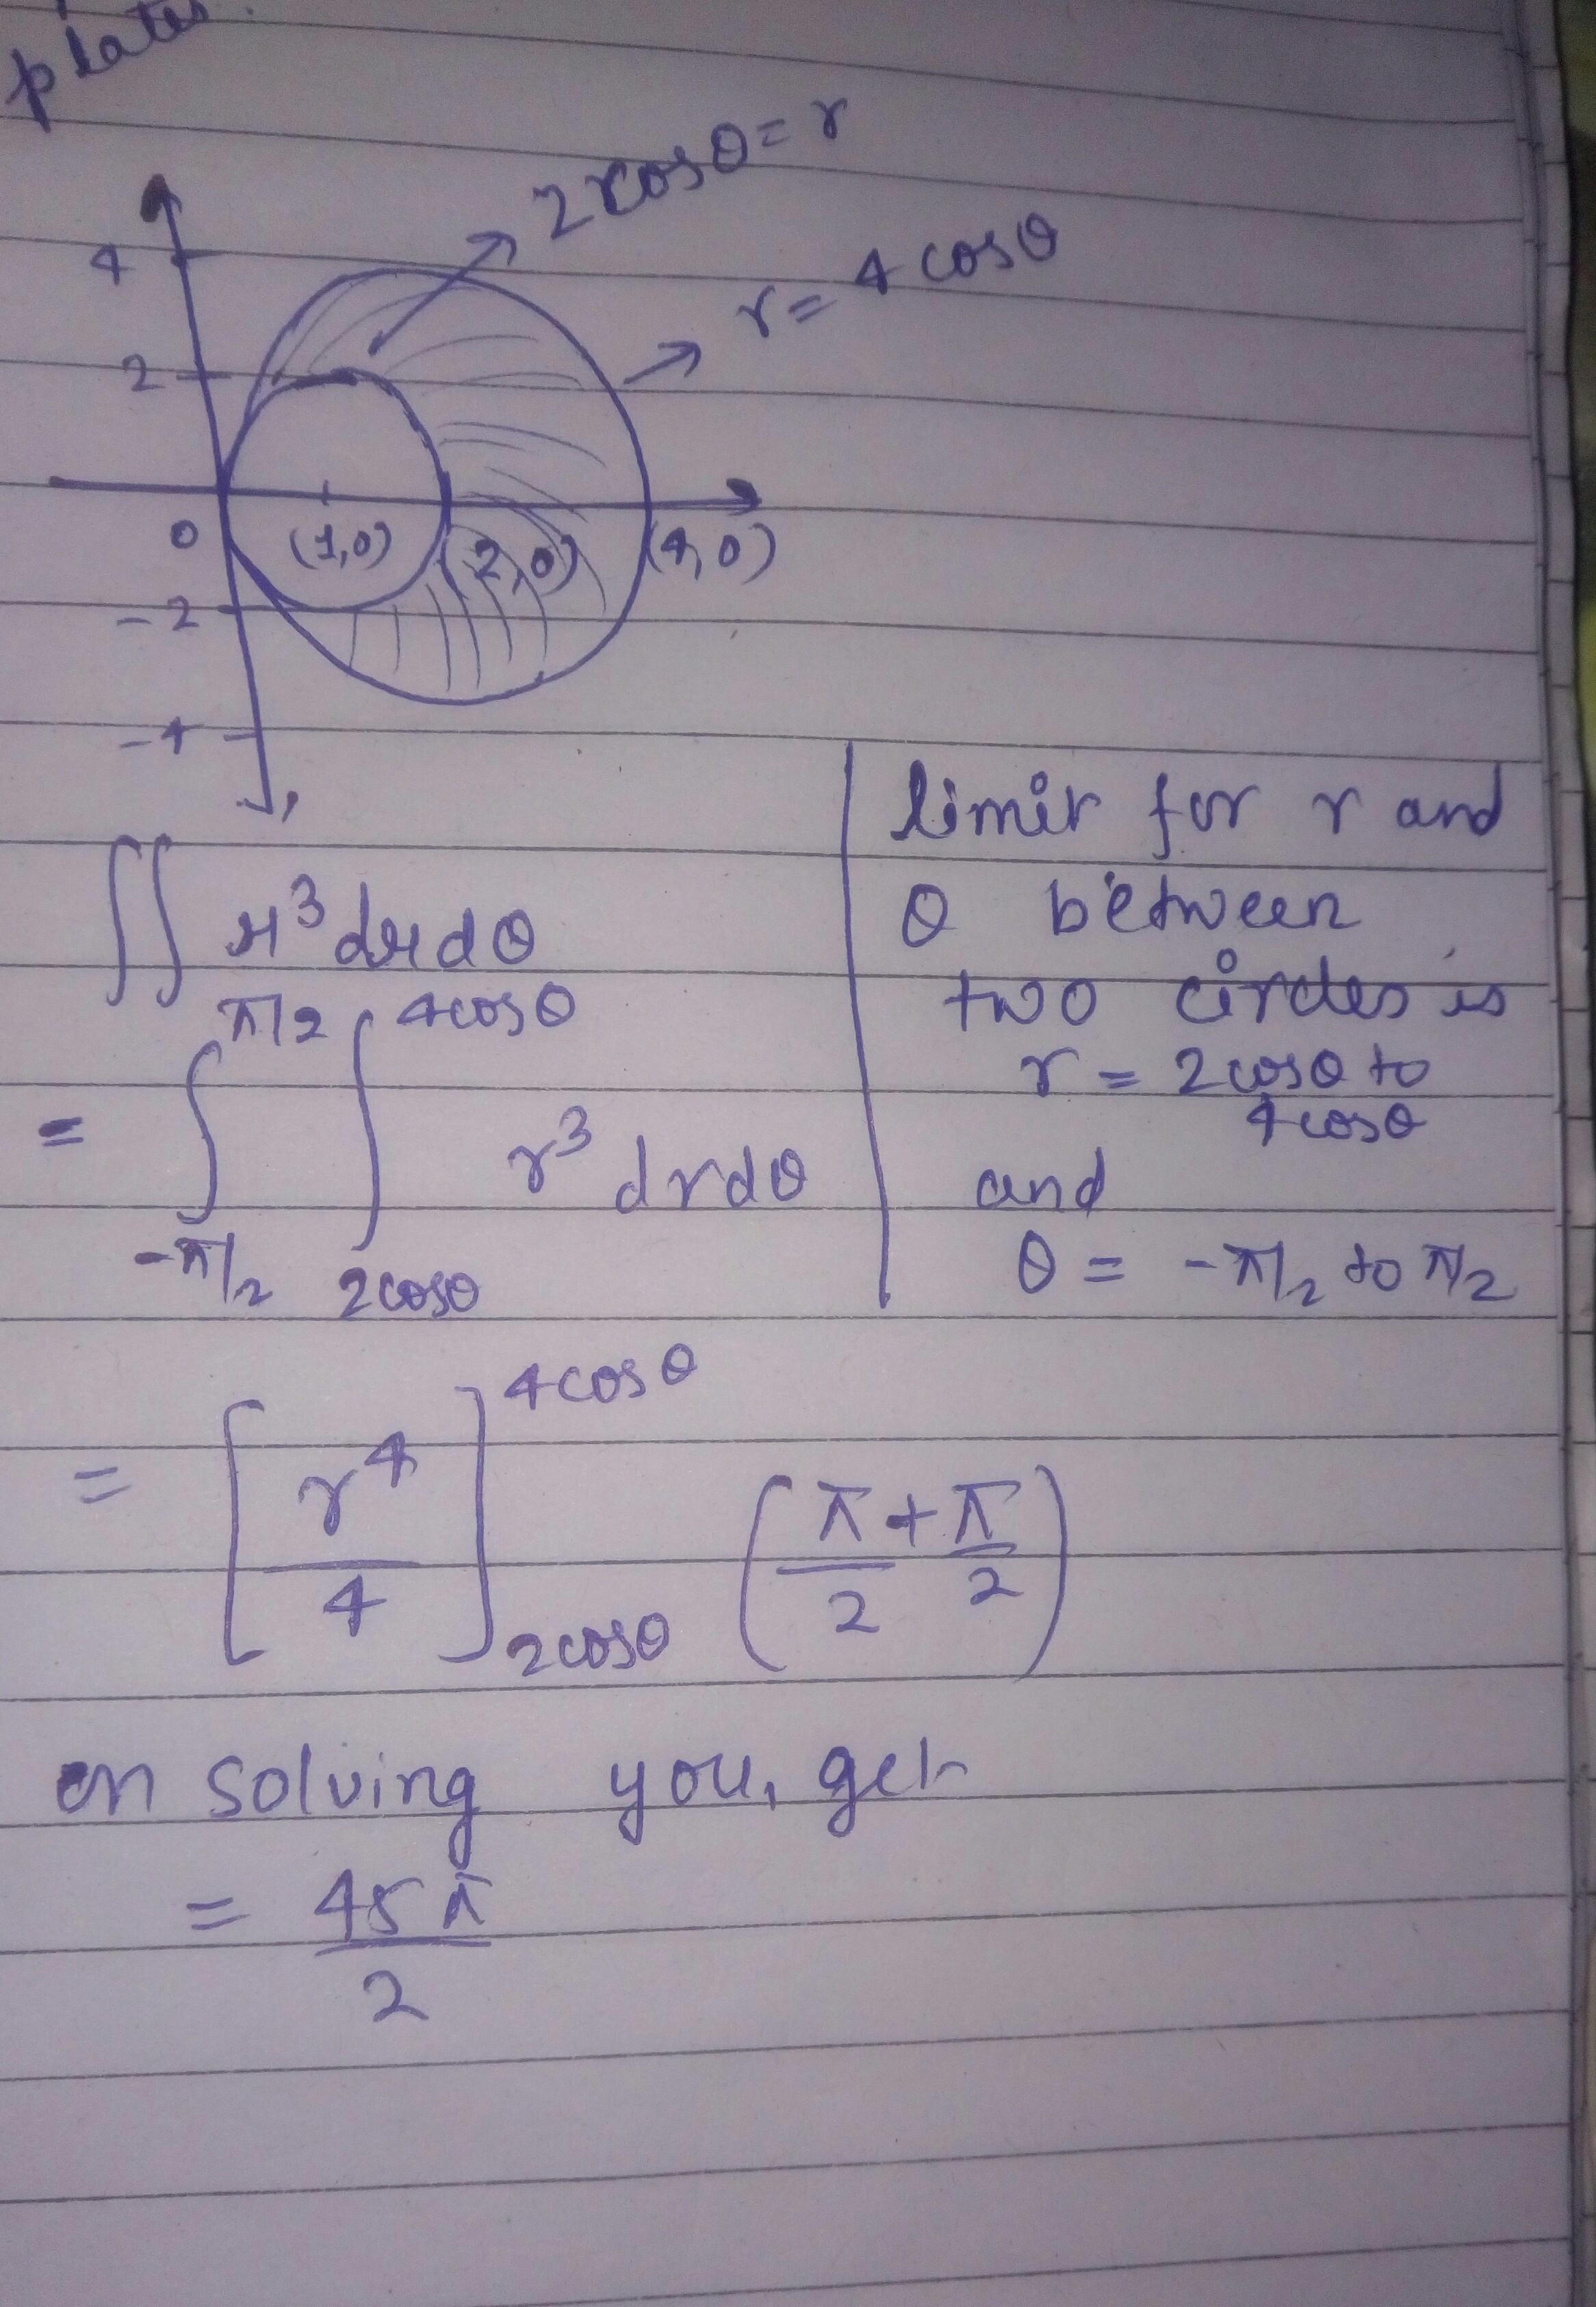 plates.
2rcosθ = r
r = 4 cosθ
4
2
0 (1,0) (2,0) (4,0)
-2
-4
∬ r³ dr dθ
= ∫_{-π/2}^{π/2} ∫_{2cosθ}^{4cosθ} r³ drdθ
limit for r and
θ between
two circles is
r = 2cosθ to
4cosθ
and
θ = -π/2 to π/2
= [r⁴/4]_{2cosθ}^{4cosθ} (π/2 + π/2)
on solving you, get
= 45π/2